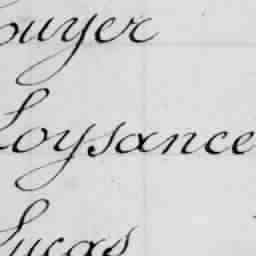 ouyer
Loysance
Lucas